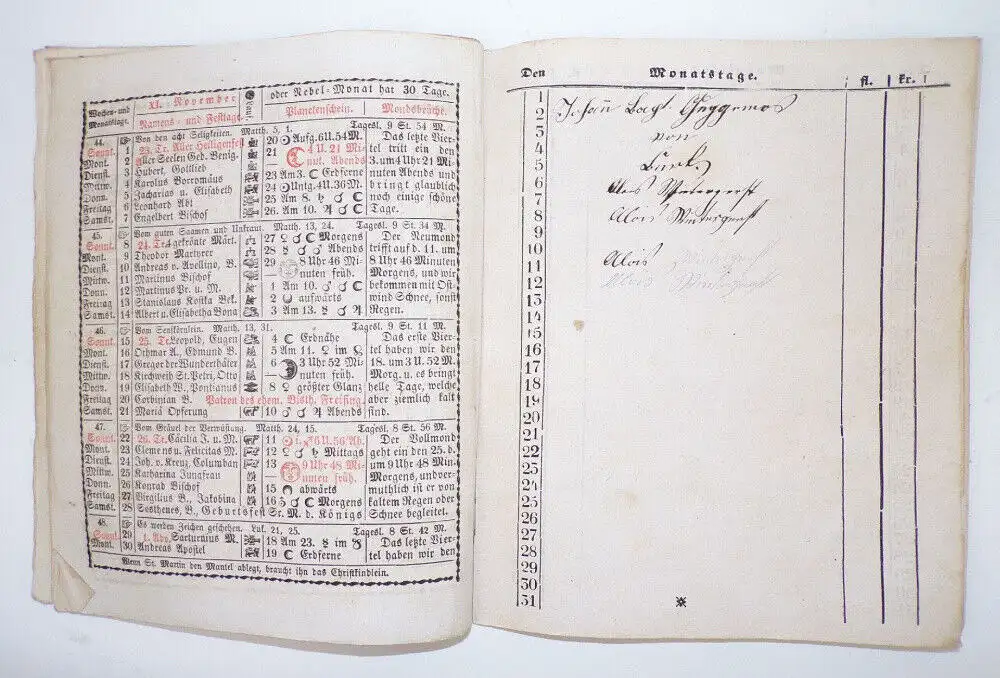 XI. November
oder Nebel-Monat hat 30 Tage.
Wochen- und Monatstage.
Namens- und Festtage.
Planetenschein.
Mondsbrüche.
44.
Von den acht Seligkeiten. Matth. 5, 1. Tagesl. 9 St. 54 M.
Sonnt. 1 23. Tr. Aller Heiligenfest
Mont. 2 Aller Seelen Ged. Benig.
Dienst. 3 Hubert, Gottlieb
Mittw. 4 Karolus Borromäus
Donn. 5 Zacharias u. Elisabeth
Freitag 6 Leonhard Abt
Samst. 7 Engelbert Bischof
20 Aufg. 6 U. 54 M.
21 ☾ 4 U. 21 Mi-
nut. Abends
23 Am 3. ☾ Erdferne
24 Untg. 4 U. 36 M.
25 Am 8. ♄ ☌ ☾
26 Am 10. ♃ ☌ ☾
Das letzte Vier-
tel tritt ein den
3. um 4 Uhr 21 Mi-
nuten Abends und
bringt glaublich
noch einige schöne
Tage.
45.
Vom guten Saamen und Unkraut. Matth. 13, 24. Tagesl. 9 St. 34 M.
Sonnt. 8 24. Tr. 4 gekrönte Märt.
Mont. 9 Theodor Martyrer
Dienst. 10 Andreas v. Avelino, B.
Mittw. 11 Martinus Bischof
Donn. 12 Martinus P. u. M.
Freitag 13 Stanislaus Kostka Bek.
Samst. 14 Albert u. Elisabetha Bona
27 ♀ ☌ ☾ Morgens
28 Abends
29 8 Uhr 46 Mi-
nuten früh.
1 Am 10. ☌ ☾
2 aufwärts
3 Am 13. ☿ ☌ ♂
Der Neumond
trifft auf d. 11. um
8 Uhr 46 Minuten
Morgens, und wir
bekommen mit Ost-
wind Schnee, sonst
Regen.
46.
Vom Senfkörnlein. Matth. 13, 31. Tagesl. 9 St. 11 M.
Sonnt. 15 25. Tr. Leopold, Eugen
Mont. 16 Othmar A., Edmund B.
Dienst. 17 Gregor der Wunderthäter
Mittw. 18 Kirchweih St. Petri, Otto
Donn. 19 Elisabeth W., Pontianus
Freitag 20 Corbinian B. Patron des ehem. Bisth. Freising
Samst. 21 Mariä Opferung
4 ☾ Erdnähe
5 Am 11. ♀ im
6 3 Uhr 52 Mi-
nuten früh.
8 ♀ größter Glanz
10 ♂ ☌ ♃ Abends
Das erste Vier-
tel haben wir den
18. um 3 U. 52 M.
Morg. u. es bringt
helle Tage, welche
aber ziemlich kalt
sind.
47.
Vom Gräuel der Verwüstung. Matth. 24, 15. Tagesl. 8 St. 56 M.
Sonnt. 22 26. Tr. Cäcilia J. u. M.
Mont. 23 Clemens u. Felicitas M.
Dienst. 24 Joh. v. Kreuz, Columban
Mittw. 25 Katharina Jungfrau
Donn. 26 Konrad Bischof
Freitag 27 Virgilius B., Jakobina
Samst. 28 Sosthenes, B., Geburtsfest Sr. M. d. Königs
11 ☉ i. ♐ 6 U. 56 Ab.
12 Mittags
13 9 Uhr 48 Mi-
nuten früh.
15 abwärts
16 ☌ ☾ Morgens
Der Vollmond
geht ein den 25. d.
um 9 Uhr 48 Min.
Morgens, und ver-
muthlich ist er von
kaltem Regen oder
Schnee begleitet.
48.
Es werden Zeichen geschehen. Luk. 21, 25. Tagesl. 8 St. 42 M.
Sonnt. 29 1. Adv. Saturninus M.
Mont. 30 Andreas Apostel
18 Am 23. ☿ im
19 ☾ Erdferne
Das letzte Vier-
tel haben wir den
Wenn St. Martin den Mantel ablegt, braucht ihn das Christkindlein.
Den Monatstage. fl. kr.
1
2
3
4
5
6
7
8
9
10
11
12
13
14
15
16
17
18
19
20
21
22
23
24
25
26
27
28
29
30
31
Guggemos
von
Alois Wintergerst
Alois
Alois Wintergerst